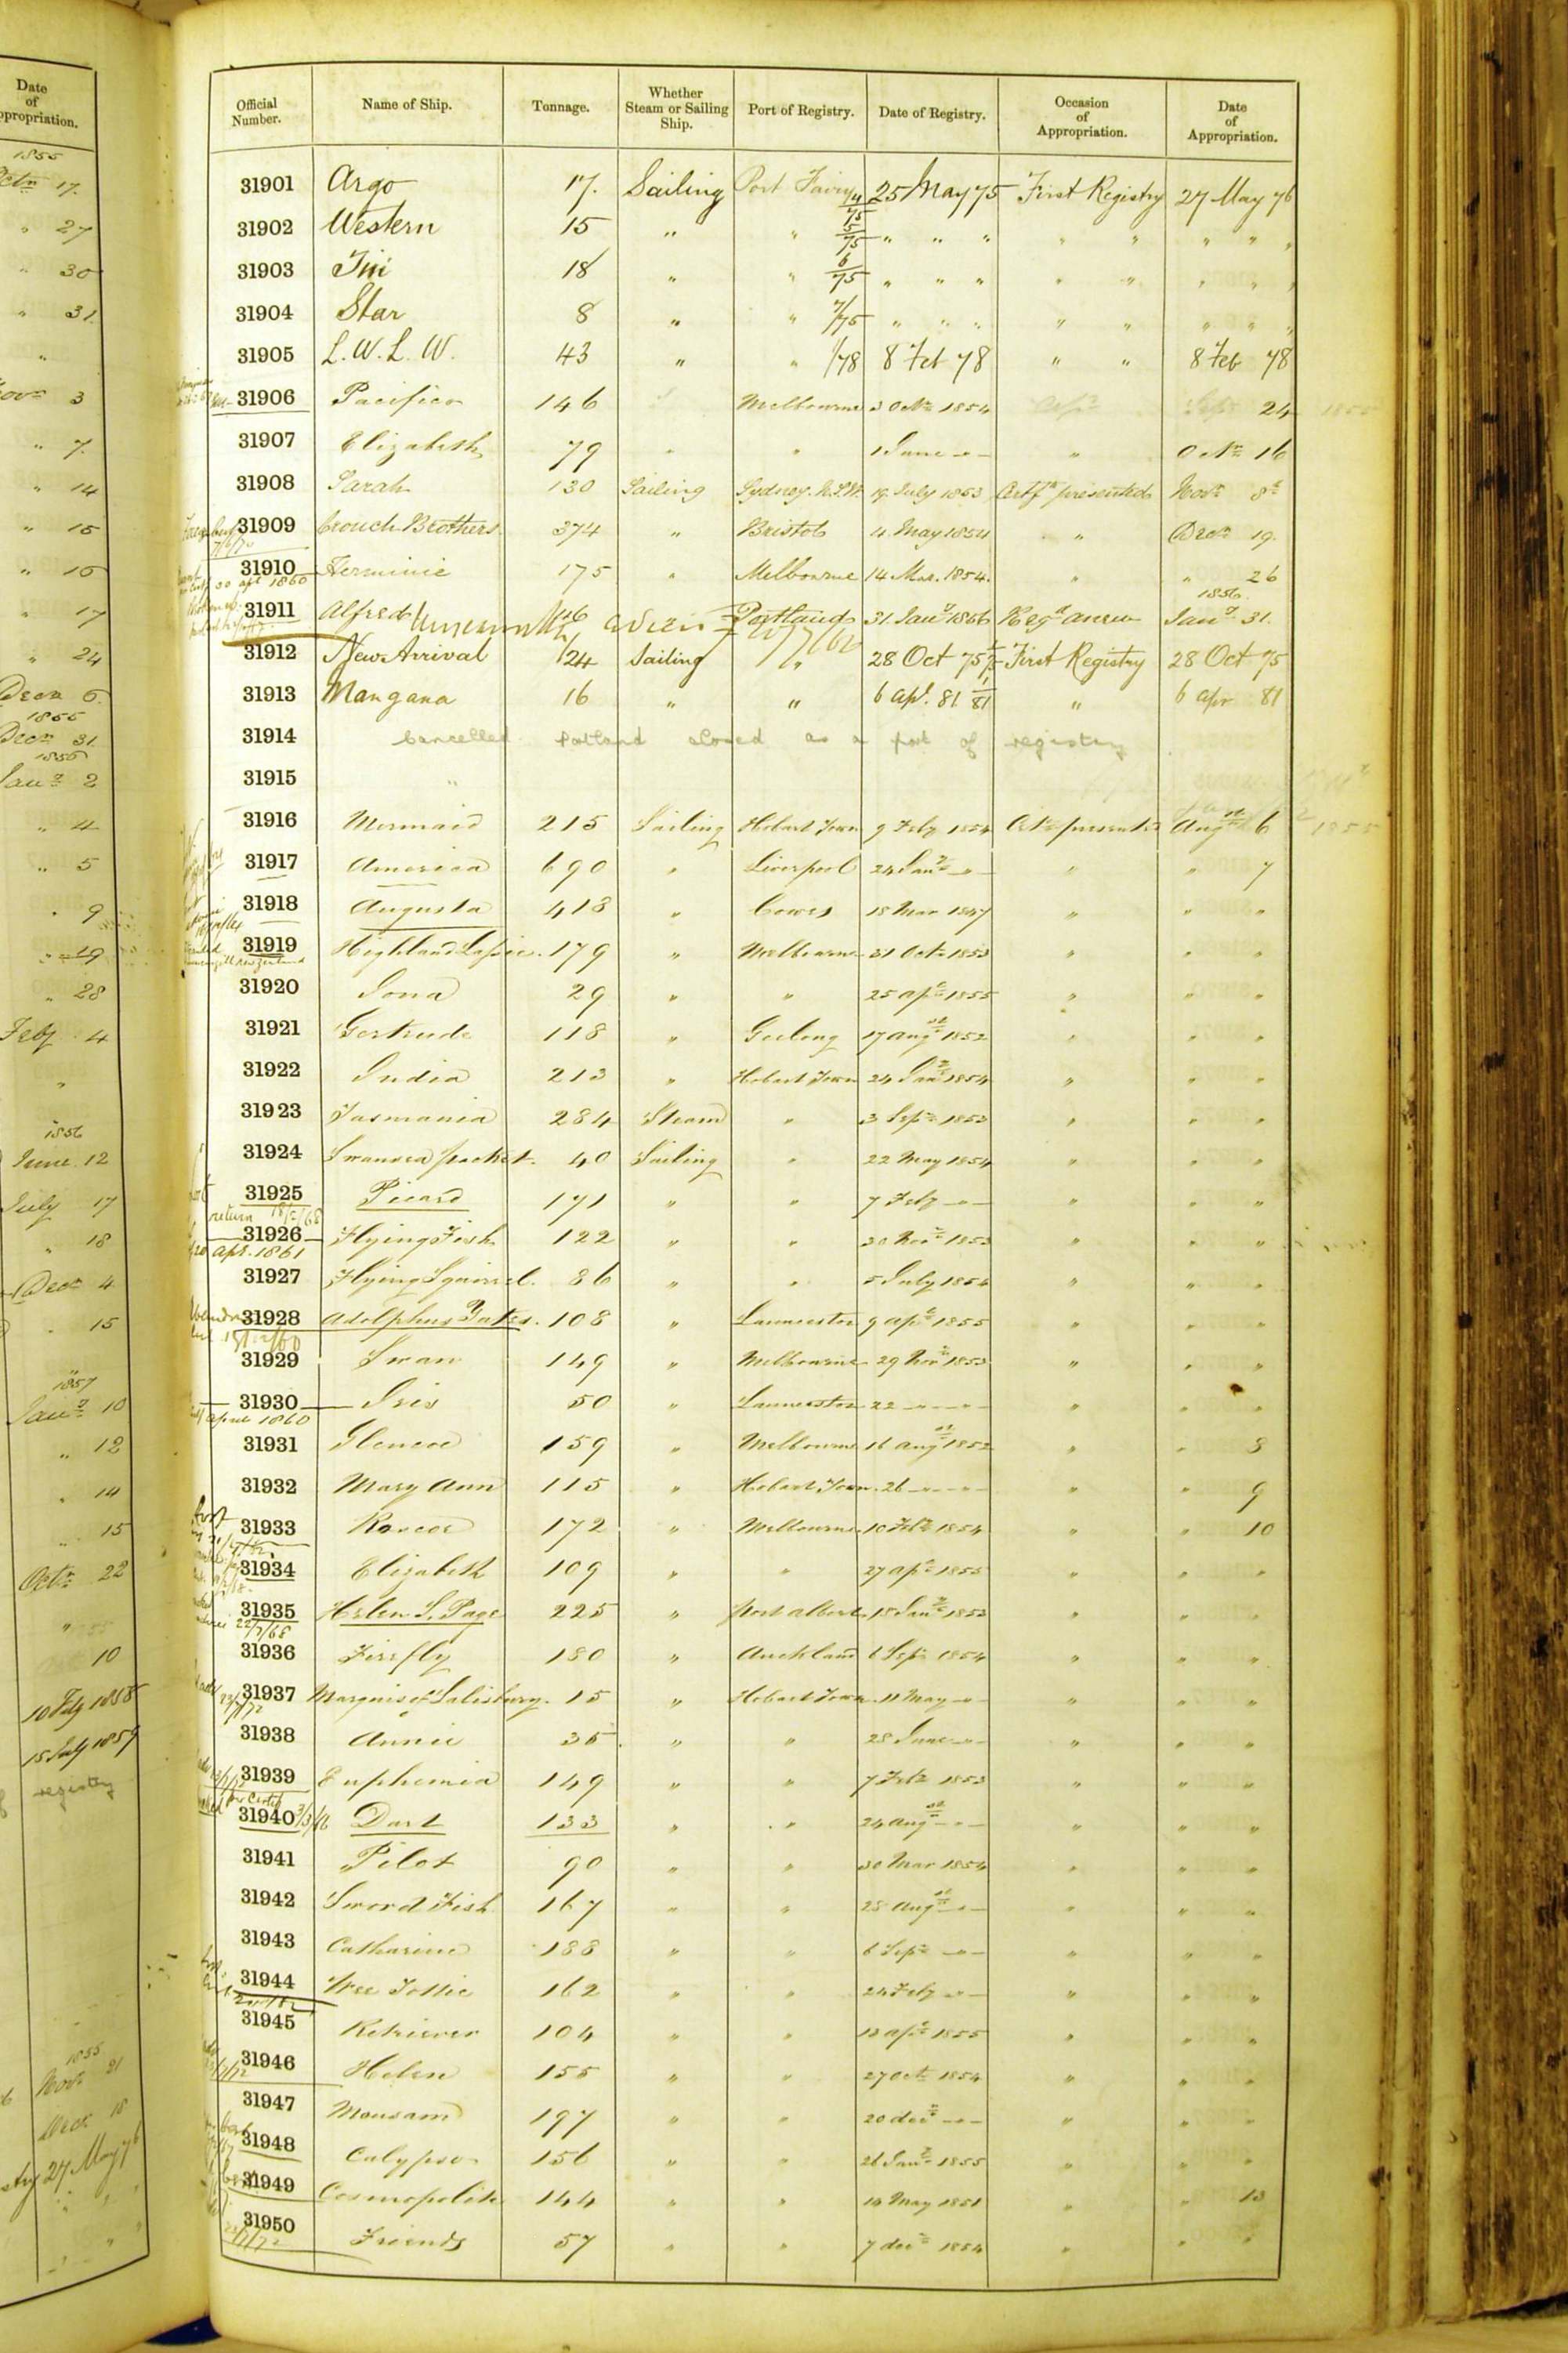 Date
of
ppropriation.
1855
Octr 17.
" 27
" 30
" 31.
"
Novr 3
" 7.
" 14
" 15
" 16
" 17
" 24
Decr 6.
1855
Decr 31.
1856
Jany 2
" 4
" 5
" 9
" 19
" 28
Feby 4
"
1856
June 12
July 17
" 18
Decr 4
" 15
1857
Jany 10
" 12
" 14
" 15
Octr 22
"
10
10 Feby 1858
15 July 1859
registry
1855
Novr 21
Decr 18
27 May 76
Official Number. Name of Ship. Tonnage. Whether Steam or Sailing Ship. Port of Registry. Date of Registry. Occasion of Appropriation. Date of Appropriation.
31901 Argo 17. Sailing Port Fairy 4/75 25 May 75 First Registry 27 May 76
31902 Western 15 " " 5/75 " " " " " " " "
31903 18 " " 6/75 " " " " " " " "
31904 Star 8 " " 7/75 " " " " " " " "
31905 L. W. L. W. 43 " " 1/78 8 Feb 78 " " 8 Feb 78
31906 Pacifico 146 Melbourne 3 Octr 1854 24 1855
31907 Elizabeth 79 " " 1 June -"- " Octr 16
31908 Sarah 130 Sailing Sydney. N.S.W. 19 July 1853 Certfe presented Novr 8
31909 Crouch Brothers. 374 " Bristol 4 May 1854 " Decr 19.
31910 Herminie 175 " Melbourne 14 Mar. 1854. " " 26
30 apl 1860
1856.
31911 Alfred 16 Portland 31 Jany 1856 Regd anew Jany 31.
31912 New Arrival 24 Sailing " 28 Oct 75 First Registry 28 Oct 75
31913 Mangana 16 " " 6 apl. 81 1/81 " 6 apr 81
31914 Cancelled Portland closed as a port of registry
31915 "
31916 Mermaid 215 Sailing Hobart Town 9 Feby 1854 Certe presented Augst 6 1855
31917 America 690 " Liverpool 24 Jany -"- " " 7
31918 Augusta 418 " Cowes 18 Mar 1847 " " "
31919 Highland Lassie. 179 " Melbourne 31 Octr 1853 " " "
31920 Iona 29 " " 25 apl 1855 " " "
31921 Gertrude 118 " Geelong 17 augst 1852 " " "
31922 India 213 " Hobart Town 24 Jany 1854 " " "
31923 Tasmania 284 Steam " 3 Sepr 1853 " " "
31924 Swansea packet. 40 Sailing " 22 May 1854 " " "
31925 Picard 171 " " 7 Feby -"- " " "
return 18/2/68
31926 Flying Fish 122 " " 30 Novr 1853 " " "
apr. 1861
31927 Flying Squirrel. 86 " " 5 July 1854 " " "
31928 Adolphus Yates. 108 " Launceston 9 apl 1855 " " "
31929 Swan 149 " Melbourne 29 Novr 1853 " " "
31930 Iris 50 " Launceston 22 -"- -"- " " "
april 1860
31931 Glencoe 159 " Melbourne 16 augst 1852 " " 8
31932 Mary Ann 115 " Hobart Town. 26 -"- -"- " " 9
31933 Roscoe 172 " Melbourne 10 Feby 1854 " " 10
31934 Elizabeth 109 " " 27 apl 1855 " " "
31935 Helen S. Page 225 " port albert 18 Jany 1853 " " "
22/7/68
31936 Firefly 180 " Auckland 6 Sepr 1854 " " "
31937 Marquis of Salisbury. 15 " Hobart Town. 11 May -"- " " "
31938 Annie 35 " " 28 June -"- " " "
31939 Euphemia 149 " " 7 Feby 1853 " " "
31940 Dart 133 " " 24 augst -"- " " "
31941 Pilot 90 " " 30 Mar 1854 " " "
31942 Sword Fish 167 " " 28 augst -"- " " "
31943 Catharine 188 " " 6 Sepr -"- " " "
31944 Wee Tottie 162 " " 24 Feby -"- " " "
31945 Retriever 104 " " 13 apl 1855 " " "
31946 Helen 155 " " 27 Octr 1854 " " "
31947 197 " " 20 decr -"- " " "
31948 Calypso 156 " " 26 Jany 1855 " " "
31949 Cosmopolite 144 " " 14 May 1851 " " 13
31950 Friends 57 " " 7 decr 1854 " " "